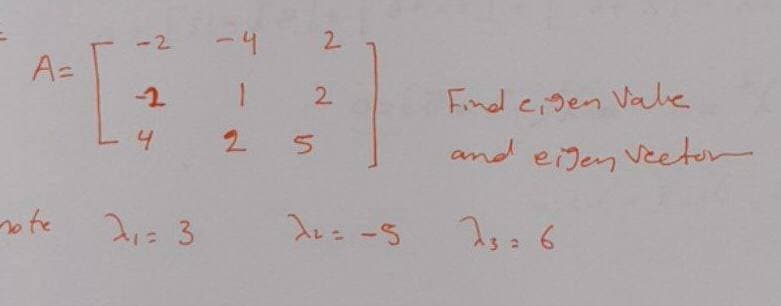 A= [ -2 -4 2
-2 1 2
4 2 5 ]
Find eigen Value
and eigen vector
note λ₁= 3 λ₂= -5 λ₃= 6